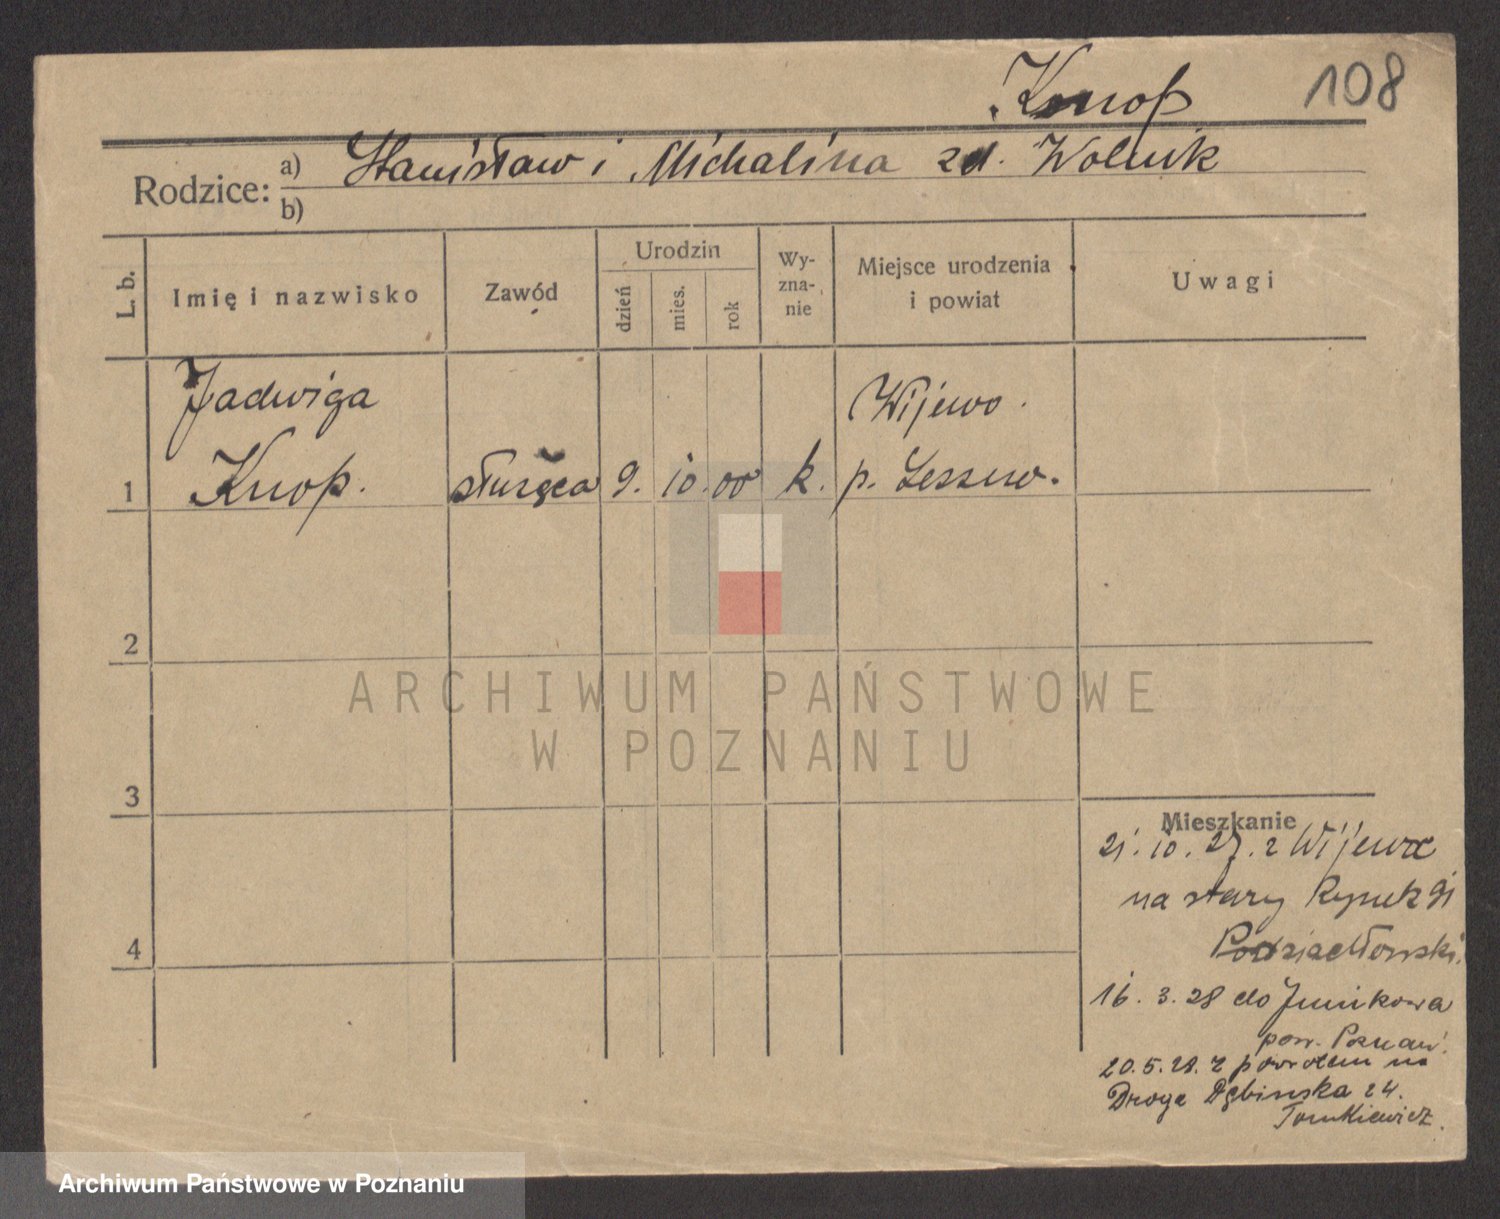 Knop 108
Rodzice: a) Stanisław i Michalina zd. Wolnik
b)
L. b. Imię i nazwisko Zawód Urodzin dzień mies. rok Wy-zna-nie Miejsce urodzenia i powiat Uwagi
Jadwiga Wijewo.
1 Knop. służąca 9. 10. 00 k. p. Leszno.
2
ARCHIWUM PAŃSTWOWE
W POZNANIU
3
Mieszkanie
21. 10. 27. z Wijewa
na stary Rynek 91
16. 3. 28 do Junikowa
pow. Poznań.
4
20.5.28. z powrotem na
Droga Dębinska 24.
Tomkiewicz.
Archiwum Państwowe w Poznaniu